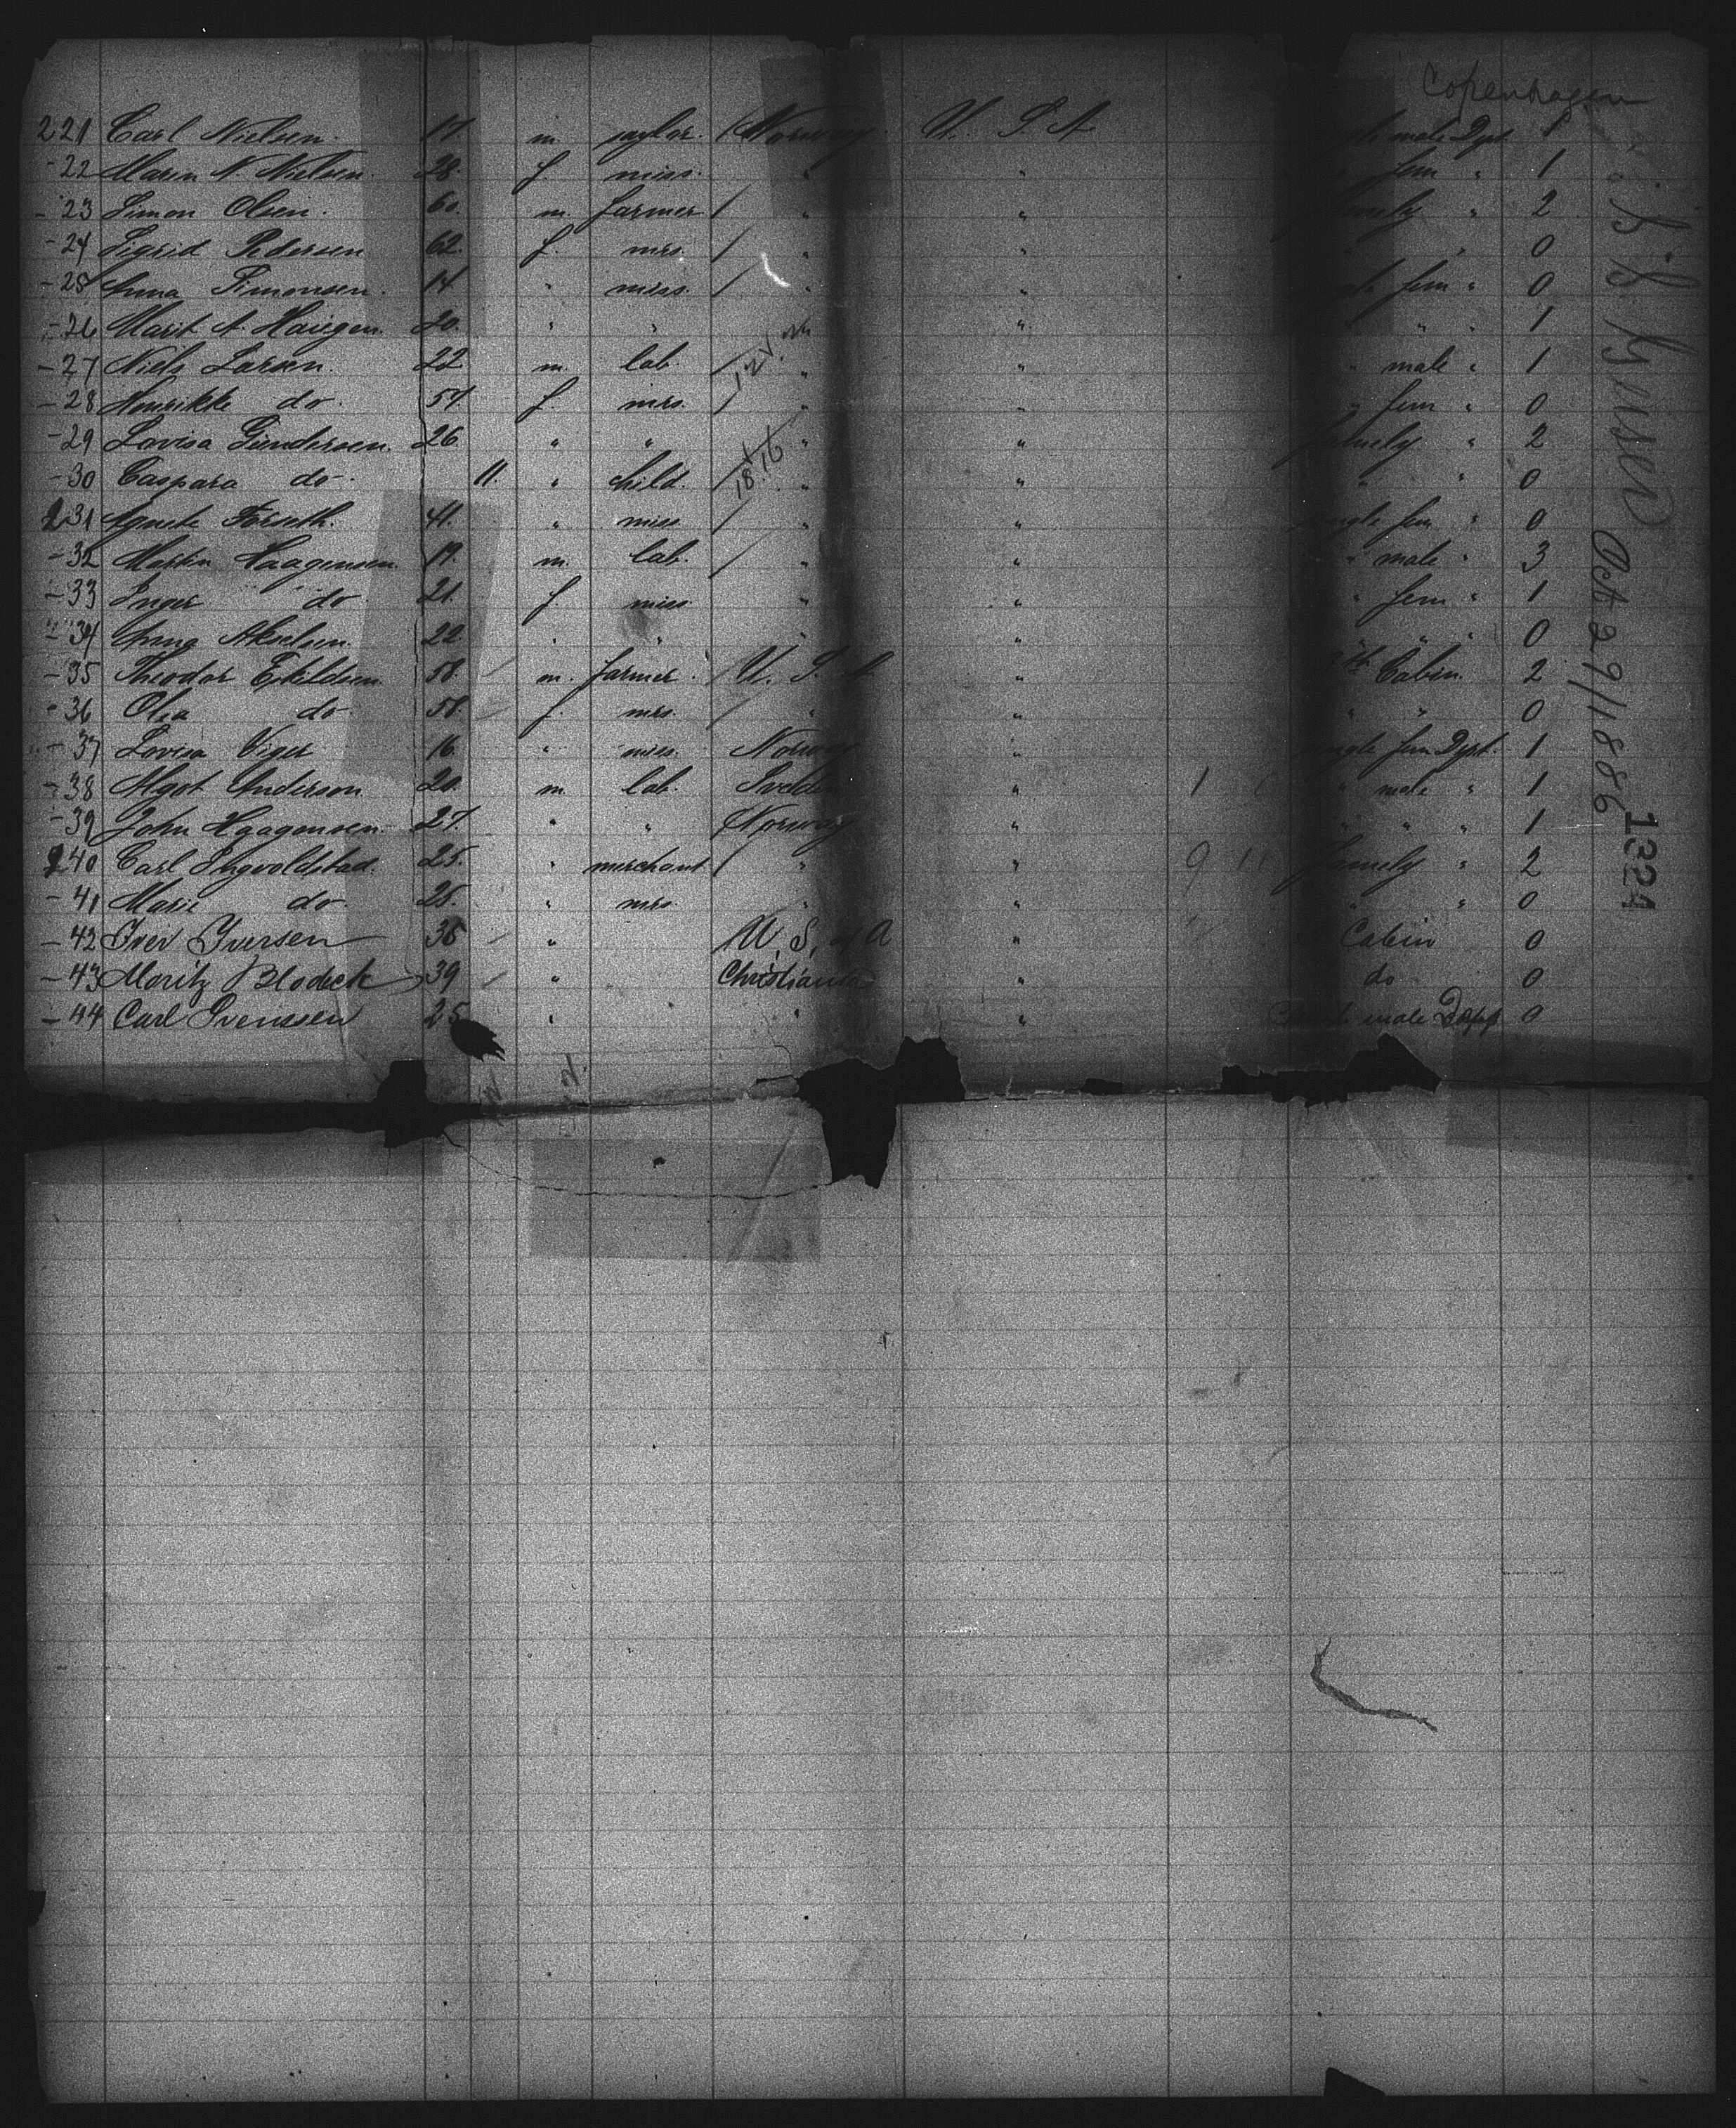 Copenhagen
221 Carl Nielsen. 17. m. saylor. Norway. U. S. A. male Dpt. 1
-22 Maren N. Nielsen. 28. f. miss. " " fem " 1
-23 Simon Olsen. 60. m. farmer / " " " 2
-24 Sigrid Pedersen 62. f. mrs. / " " " 0
-25 Anna Simonsen. 14. " miss. / " " fem " 0
-26 Marit A. Haugen. 20. " " " " " " 1
-27 Niels Larsen. 22. m. lab. / " " " male " 1
-28 Henrikke do. f. mrs. / " " " fem " 0
-29 Lovisa Gundersen. 26. " " " " family " 2
-30 Caspara do. 11. " child. / " " " " 0
231 Agnete Forseth. 41. " miss / " " single fem " 0
-32 Martin Haagensen. 19. m. lab. / " " " male " 3
-33 Inger do 21. f. miss " " " fem " 1
-34 Anna 22. " " " " " " " 0
-35 Theodor Eskildsen 58. m. farmer. / U. S. A " Cabin. 2
-36 Olea do. f. mrs. / " " " " 0
-37 Lovisa 16. " miss. Norway " single fem Dpt. 1
-38 Algot Anderson 20. m. lab. Sveden " 1 " male " 1
-39 John Haagensen. 27. " " Norway " " " " 1
240 Carl Ingvoldstad. 25. " merchant / " " 9 11 family " 2
-41 Marie do. 25. " mrs " " " " 0
-42 Iver Iversen 36 " U, S, of A " Cabin 0
-43 Moritz Blodeck 39 " Christiania " do 0
-44 Carl Svenssen 25 " " " male Depp 0
Oct 29/1886
1321